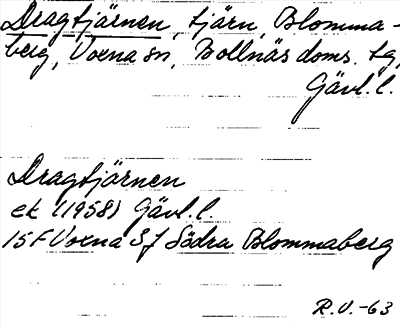 Dragtjärnen, tjärn, Blomma-
berg, Voxna sn, Bollnäs doms. tg,
Gävl. l.
Dragtjärnen
ek (1958) Gävl. l.
15F Voxna 3f Södra Blommaberg
R.V. -63